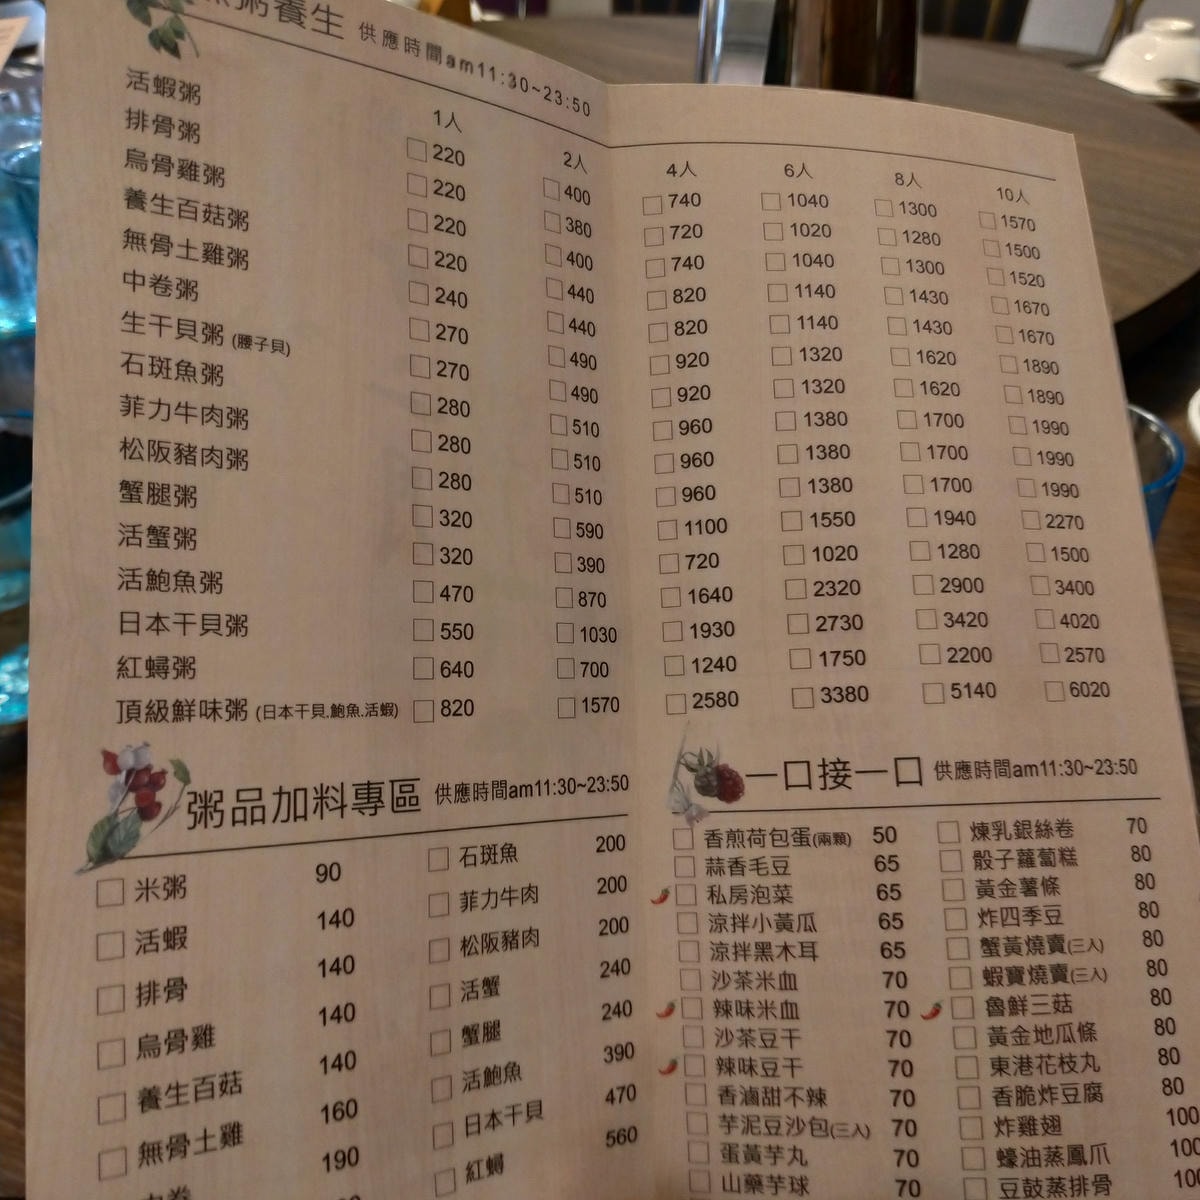 粥養生 供應時間am11:30~23:50
1人 2人 4人 6人 8人 10人
活蝦粥 220 400 740 1040 1300 1570
排骨粥 220 380 720 1020 1280 1500
烏骨雞粥 220 400 740 1040 1300 1520
養生百菇粥 220 440 820 1140 1430 1670
無骨土雞粥 240 440 820 1140 1430 1670
中卷粥 270 490 920 1320 1620 1890
生干貝粥 (腰子貝) 270 490 920 1320 1620 1890
石斑魚粥 280 510 960 1380 1700 1990
菲力牛肉粥 280 510 960 1380 1700 1990
松阪豬肉粥 280 510 960 1380 1700 1990
蟹腿粥 320 590 1100 1550 1940 2270
活蟹粥 320 390 720 1020 1280 1500
活鮑魚粥 470 870 1640 2320 2900 3400
日本干貝粥 550 1030 1930 2730 3420 4020
紅蟳粥 640 700 1240 1750 2200 2570
頂級鮮味粥 (日本干貝.鮑魚.活蝦) 820 1570 2580 3380 5140 6020
粥品加料專區 供應時間am11:30~23:50
米粥 90
活蝦 140
排骨 140
烏骨雞 140
養生百菇 140
無骨土雞 160
中卷 190
石斑魚 200
菲力牛肉 200
松阪豬肉 200
活蟹 240
蟹腿 240
活鮑魚 390
日本干貝 470
紅蟳 560
一口接一口 供應時間am11:30~23:50
香煎荷包蛋(兩顆) 50
蒜香毛豆 65
私房泡菜 65
涼拌小黃瓜 65
涼拌黑木耳 65
沙茶米血 70
辣味米血 70
沙茶豆干 70
辣味豆干 70
香滷甜不辣 70
芋泥豆沙包(三入) 70
蛋黃芋丸 70
山藥芋球 70
煉乳銀絲卷 70
骰子蘿蔔糕 80
黃金薯條 80
炸四季豆 80
蟹黃燒賣(三入) 80
蝦寶燒賣(三入) 80
魯鮮三菇 80
黃金地瓜條 80
東港花枝丸 80
香脆炸豆腐 80
炸雞翅 100
蠔油蒸鳳爪 100
豆鼓蒸排骨 100